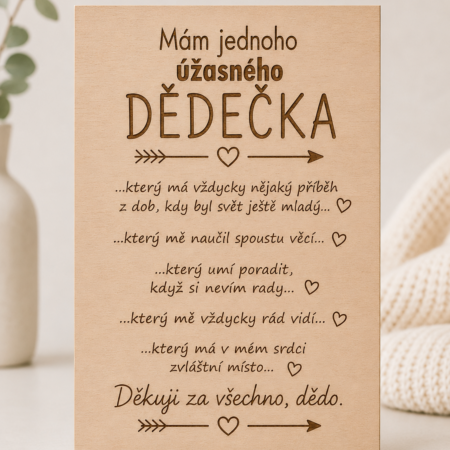 Mám jednoho
úžasného
DĚDEČKA
...který má vždycky nějaký příběh
z dob, kdy byl svět ještě mladý...
...který mě naučil spoustu věcí...
...který umí poradit,
když si nevím rady...
...který mě vždycky rád vidí...
...který má v mém srdci
zvláštní místo...
Děkuji za všechno, dědo.